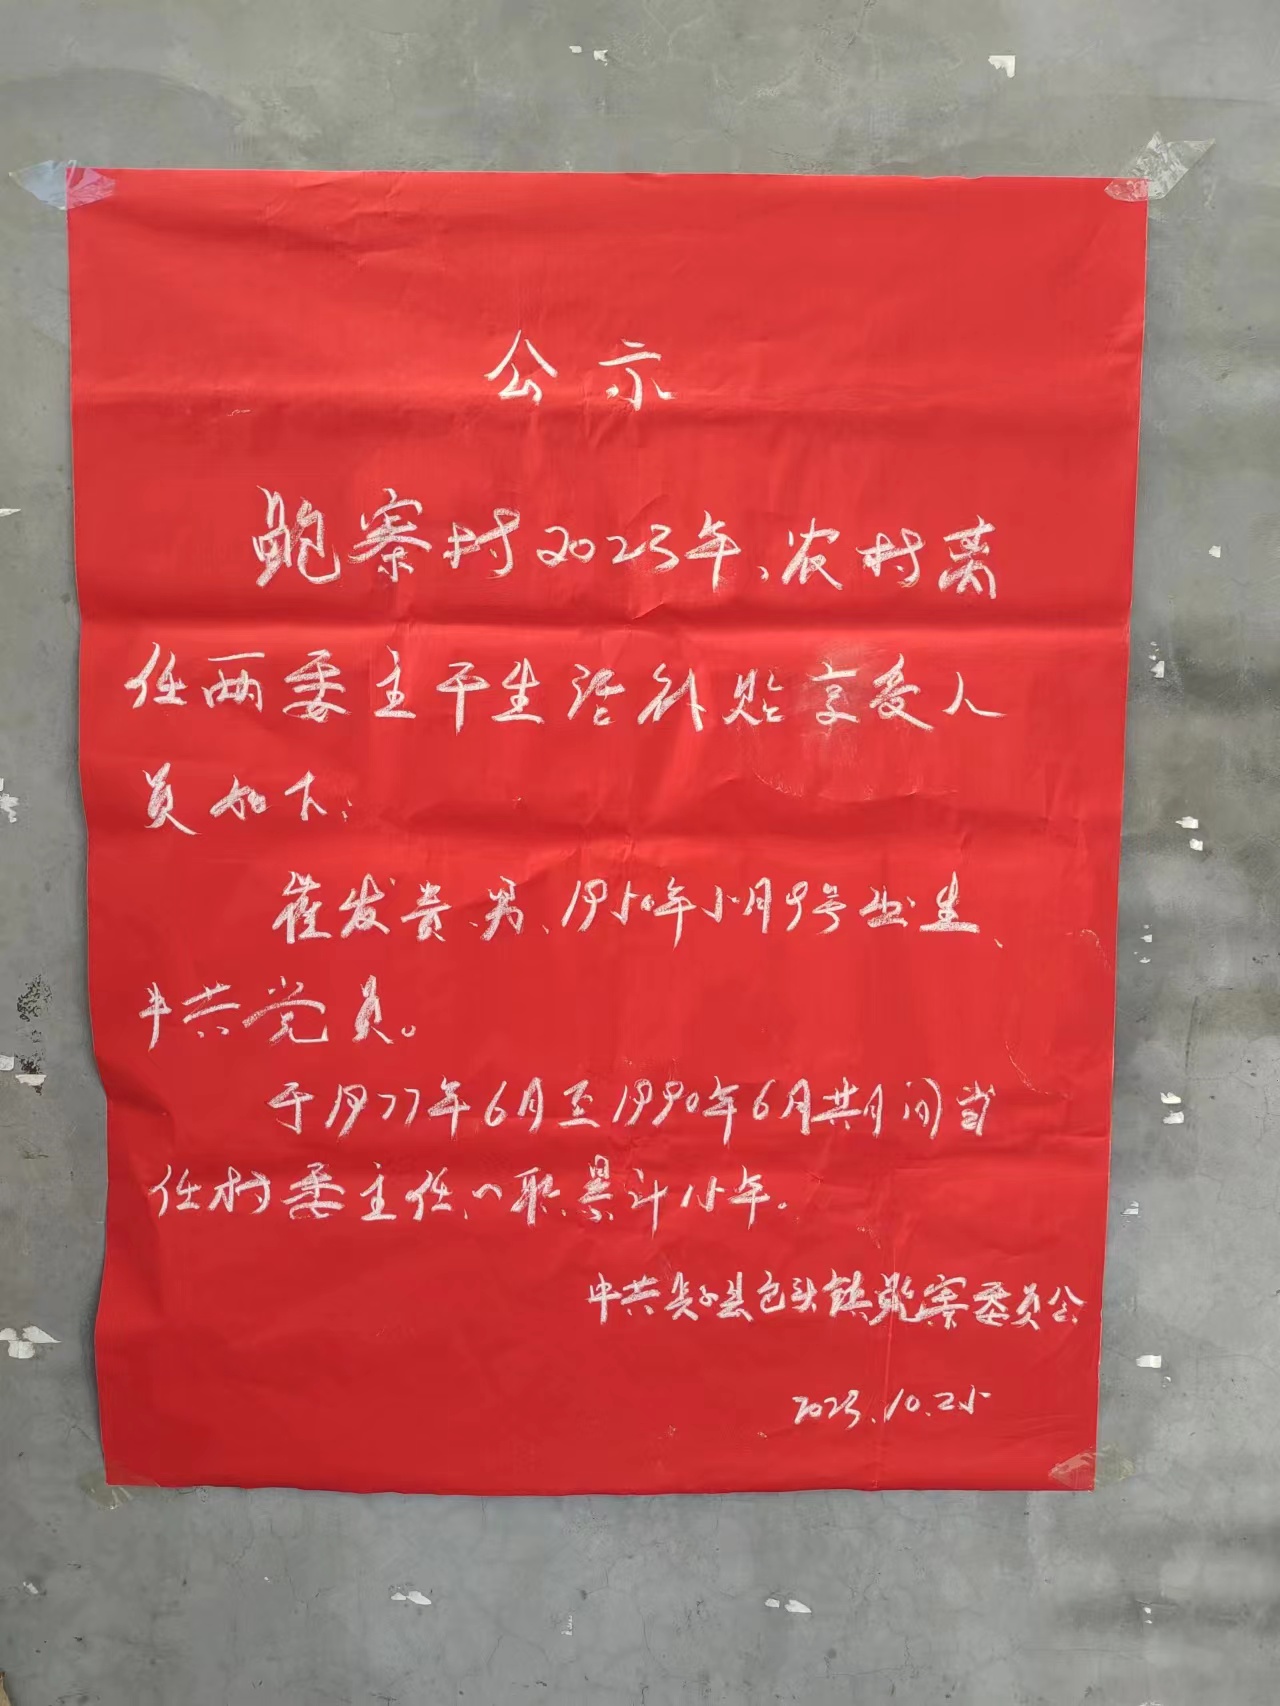 公示
鲍寨村2023年、农村离
任两委主干生活补贴享受人
员如下:
崔发贵、男、1950年5月9号出生、
中共党员。
于1977年6月至1990年6月其月间当
任村委主任、一职累计15年。
中共 县包头镇鲍寨委员会
2023.10.25